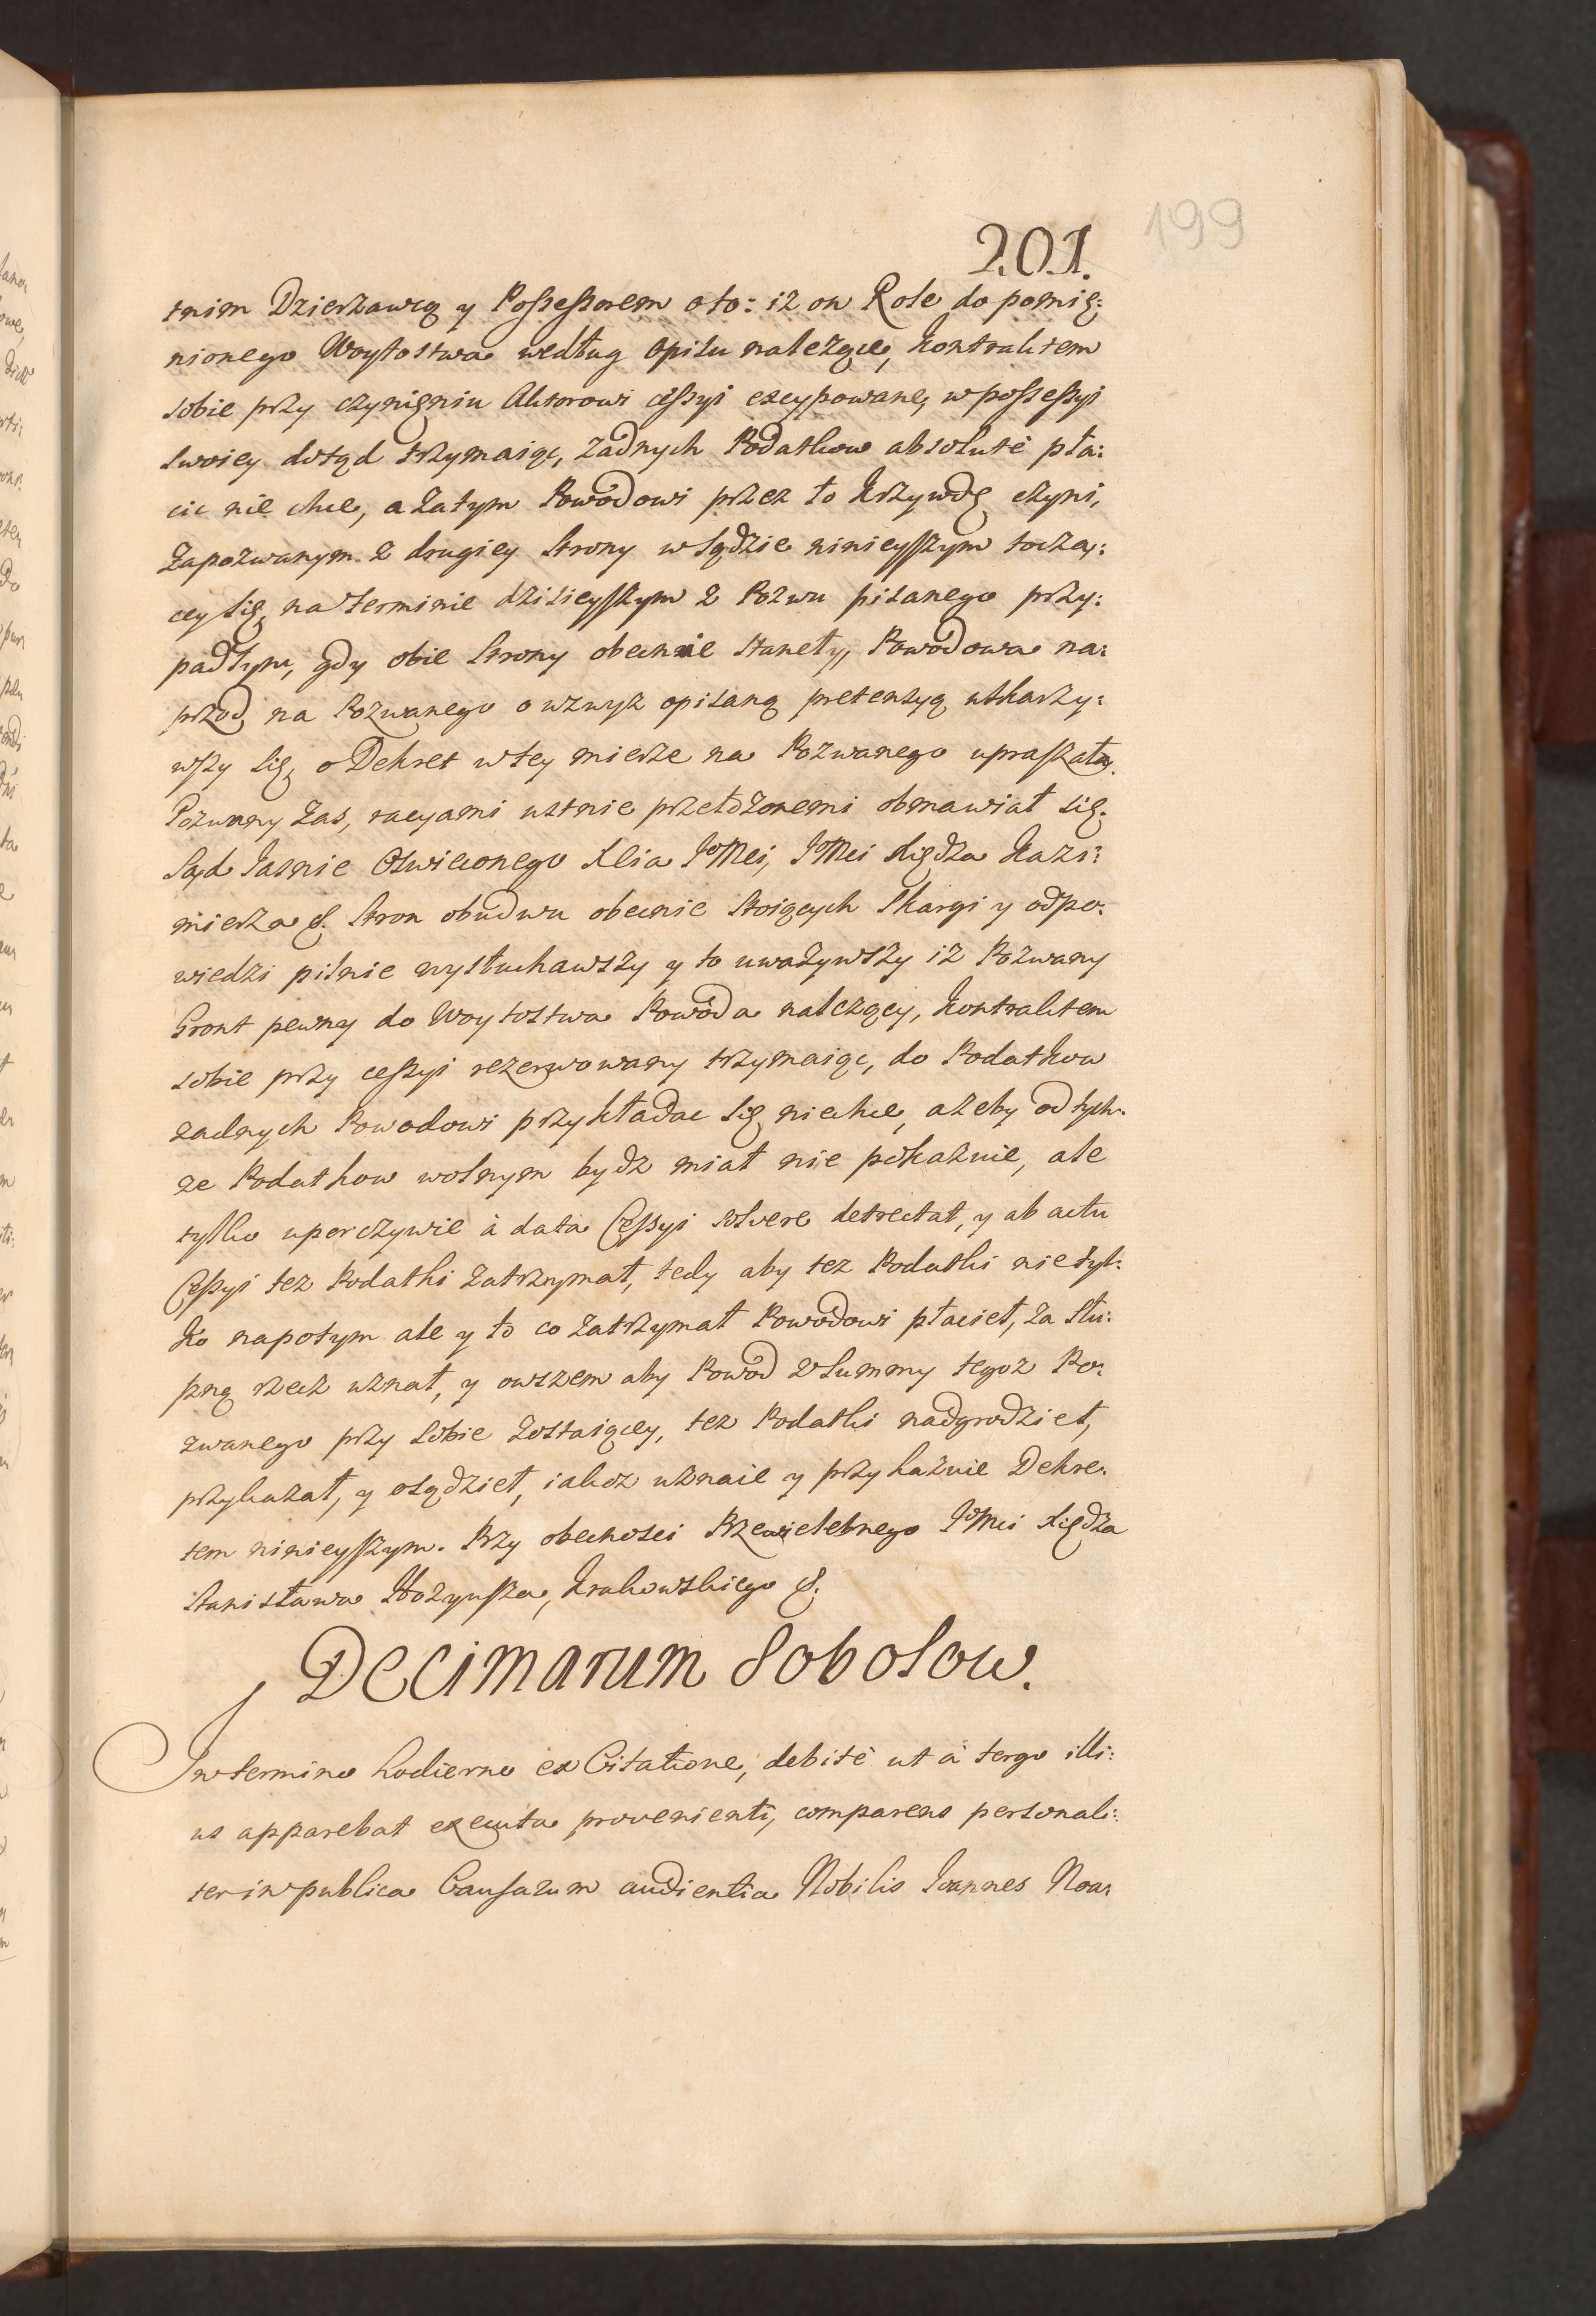 201.
199
tnim Dzierzawcą y Possessorem o to: iz on Role do pomię:
nionego Woytostwa według Opisu nalezące, kontraktem
sobie przy czynięniu Aktorowi cessyi excypowane, w possessyi
swoiey dotąd trzymaiąc, żadnych Podatkow absolutè pła:
cic nie chce, a zatym Powodowi przez to krzywdę czyni,
Zapozwanym z drugiey Strony w Sądzie ninieyszym toczą:
cey się, na terminie dzisieyszym z Pozwu pisanego przy:
padłym, gdy obie Strony obecnie stanęły, Powodowa na:
przod na Pozwanego o wzwyż opisaną pretensyą uskarży:
wszy się, o Dekret w tey mierze na Pozwanego upraszała.
Pozwany zas, racyami ustnie przełożonemi obmawiał się.
Sąd Jasnie Oswieconego Xcia JoMci, JoMci Xiędza Kazi:
mierza &. Stron obudwu obecnie stoiących Skargi y odpo:
wiedzi pilnie wysłuchawszy y to uwazywszy iz Pozwany
Gront pewny do Woytostwa Powoda nalezący, kontraktem
sobie przy cessyi rezerwowany trzymaiąc, do Podatkow
zadnych Powodowi przykładac się niechce, azeby od tych:
ze Podatkow wolnym bydz miał nie pokazuie, ale
tylko uporczywie à data Cessyi solvere detrectat, y ab actu
Cessyi tez Podatki zatrzymał, tedy aby tez Podatki nietyl:
ko napotym ale y to co zatrzymał Powodowi płacieł, za słu:
szną rzecz uznał, y owszem aby Powod z Summy tegoz Po:
zwanego przy sobie zostaiącey, tez Podatki nadgrodzieł,
przykazał, y osądzieł, iakoz uznaie y przykazuie Dekre:
tem ninieyszym. Przy obecnosci Przewielebnego JoMci Xiędza
Stanisława Hozyusza, Krakowskiego &.
Decimarum Sobolow.
In termino hodierno ex Citatione, debitè ut à tergo illi:
us apparebat executa provenienti, comparens personali:
ter in publica Causarum audientia Nobilis Joannes Noa: